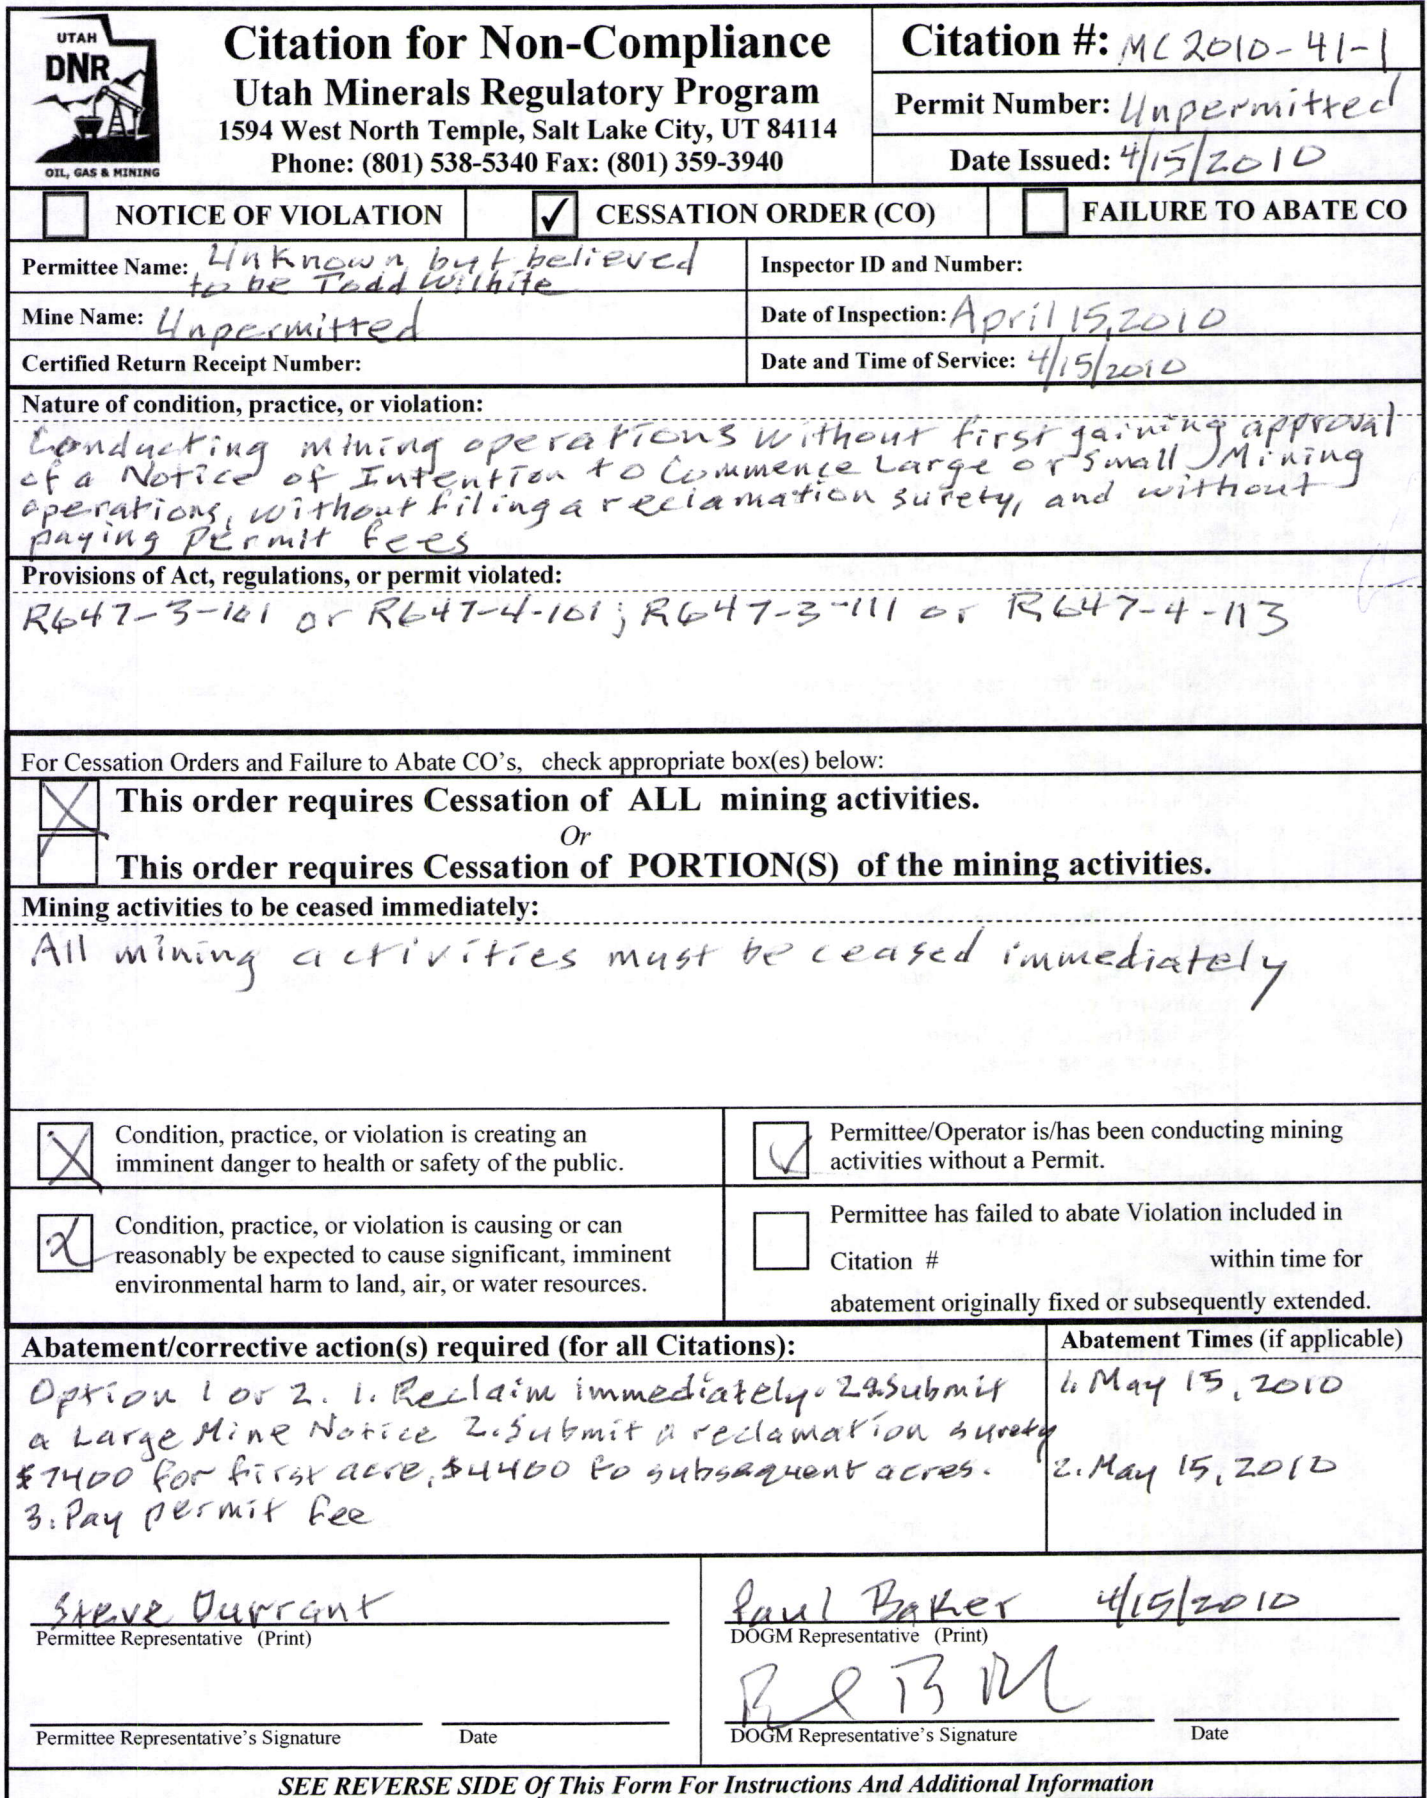 UTAH
DNR
OIL, GAS & MINING
Citation for Non-Compliance
Utah Minerals Regulatory Program
1594 West North Temple, Salt Lake City, UT 84114
Phone: (801) 538-5340 Fax: (801) 359-3940
Citation #: MC2010-41-1
Permit Number: Unpermitted
Date Issued: 4/15/2010
NOTICE OF VIOLATION
✓ CESSATION ORDER (CO)
FAILURE TO ABATE CO
Permittee Name: Unknown but believed
to be Todd Wilhite
Inspector ID and Number:
Mine Name: Unpermitted
Date of Inspection: April 15, 2010
Certified Return Receipt Number:
Date and Time of Service: 4/15/2010
Nature of condition, practice, or violation:
Conducting mining operations without first gaining approval
of a Notice of Intention to Commence Large or Small Mining
operations, without filing a reclamation surety, and without
paying permit fees
Provisions of Act, regulations, or permit violated:
R647-3-101 or R647-4-101; R647-3-111 or R647-4-113
For Cessation Orders and Failure to Abate CO's, check appropriate box(es) below:
X This order requires Cessation of ALL mining activities.
Or
This order requires Cessation of PORTION(S) of the mining activities.
Mining activities to be ceased immediately:
All mining activities must be ceased immediately
X Condition, practice, or violation is creating an
imminent danger to health or safety of the public.
✓ Permittee/Operator is/has been conducting mining
activities without a Permit.
X Condition, practice, or violation is causing or can
reasonably be expected to cause significant, imminent
environmental harm to land, air, or water resources.
Permittee has failed to abate Violation included in
Citation # within time for
abatement originally fixed or subsequently extended.
Abatement/corrective action(s) required (for all Citations):
Abatement Times (if applicable)
Option 1 or 2. 1. Reclaim immediately. 2a. Submit
a Large Mine Notice 2. Submit a reclamation surety
$7400 for first acre, $4400 to subsequent acres.
3. Pay permit fee
1. May 15, 2010
2. May 15, 2010
Steve Durrant
Permittee Representative (Print)
Paul Baker 4/15/2010
DOGM Representative (Print)
Permittee Representative's Signature Date
DOGM Representative's Signature Date
SEE REVERSE SIDE Of This Form For Instructions And Additional Information